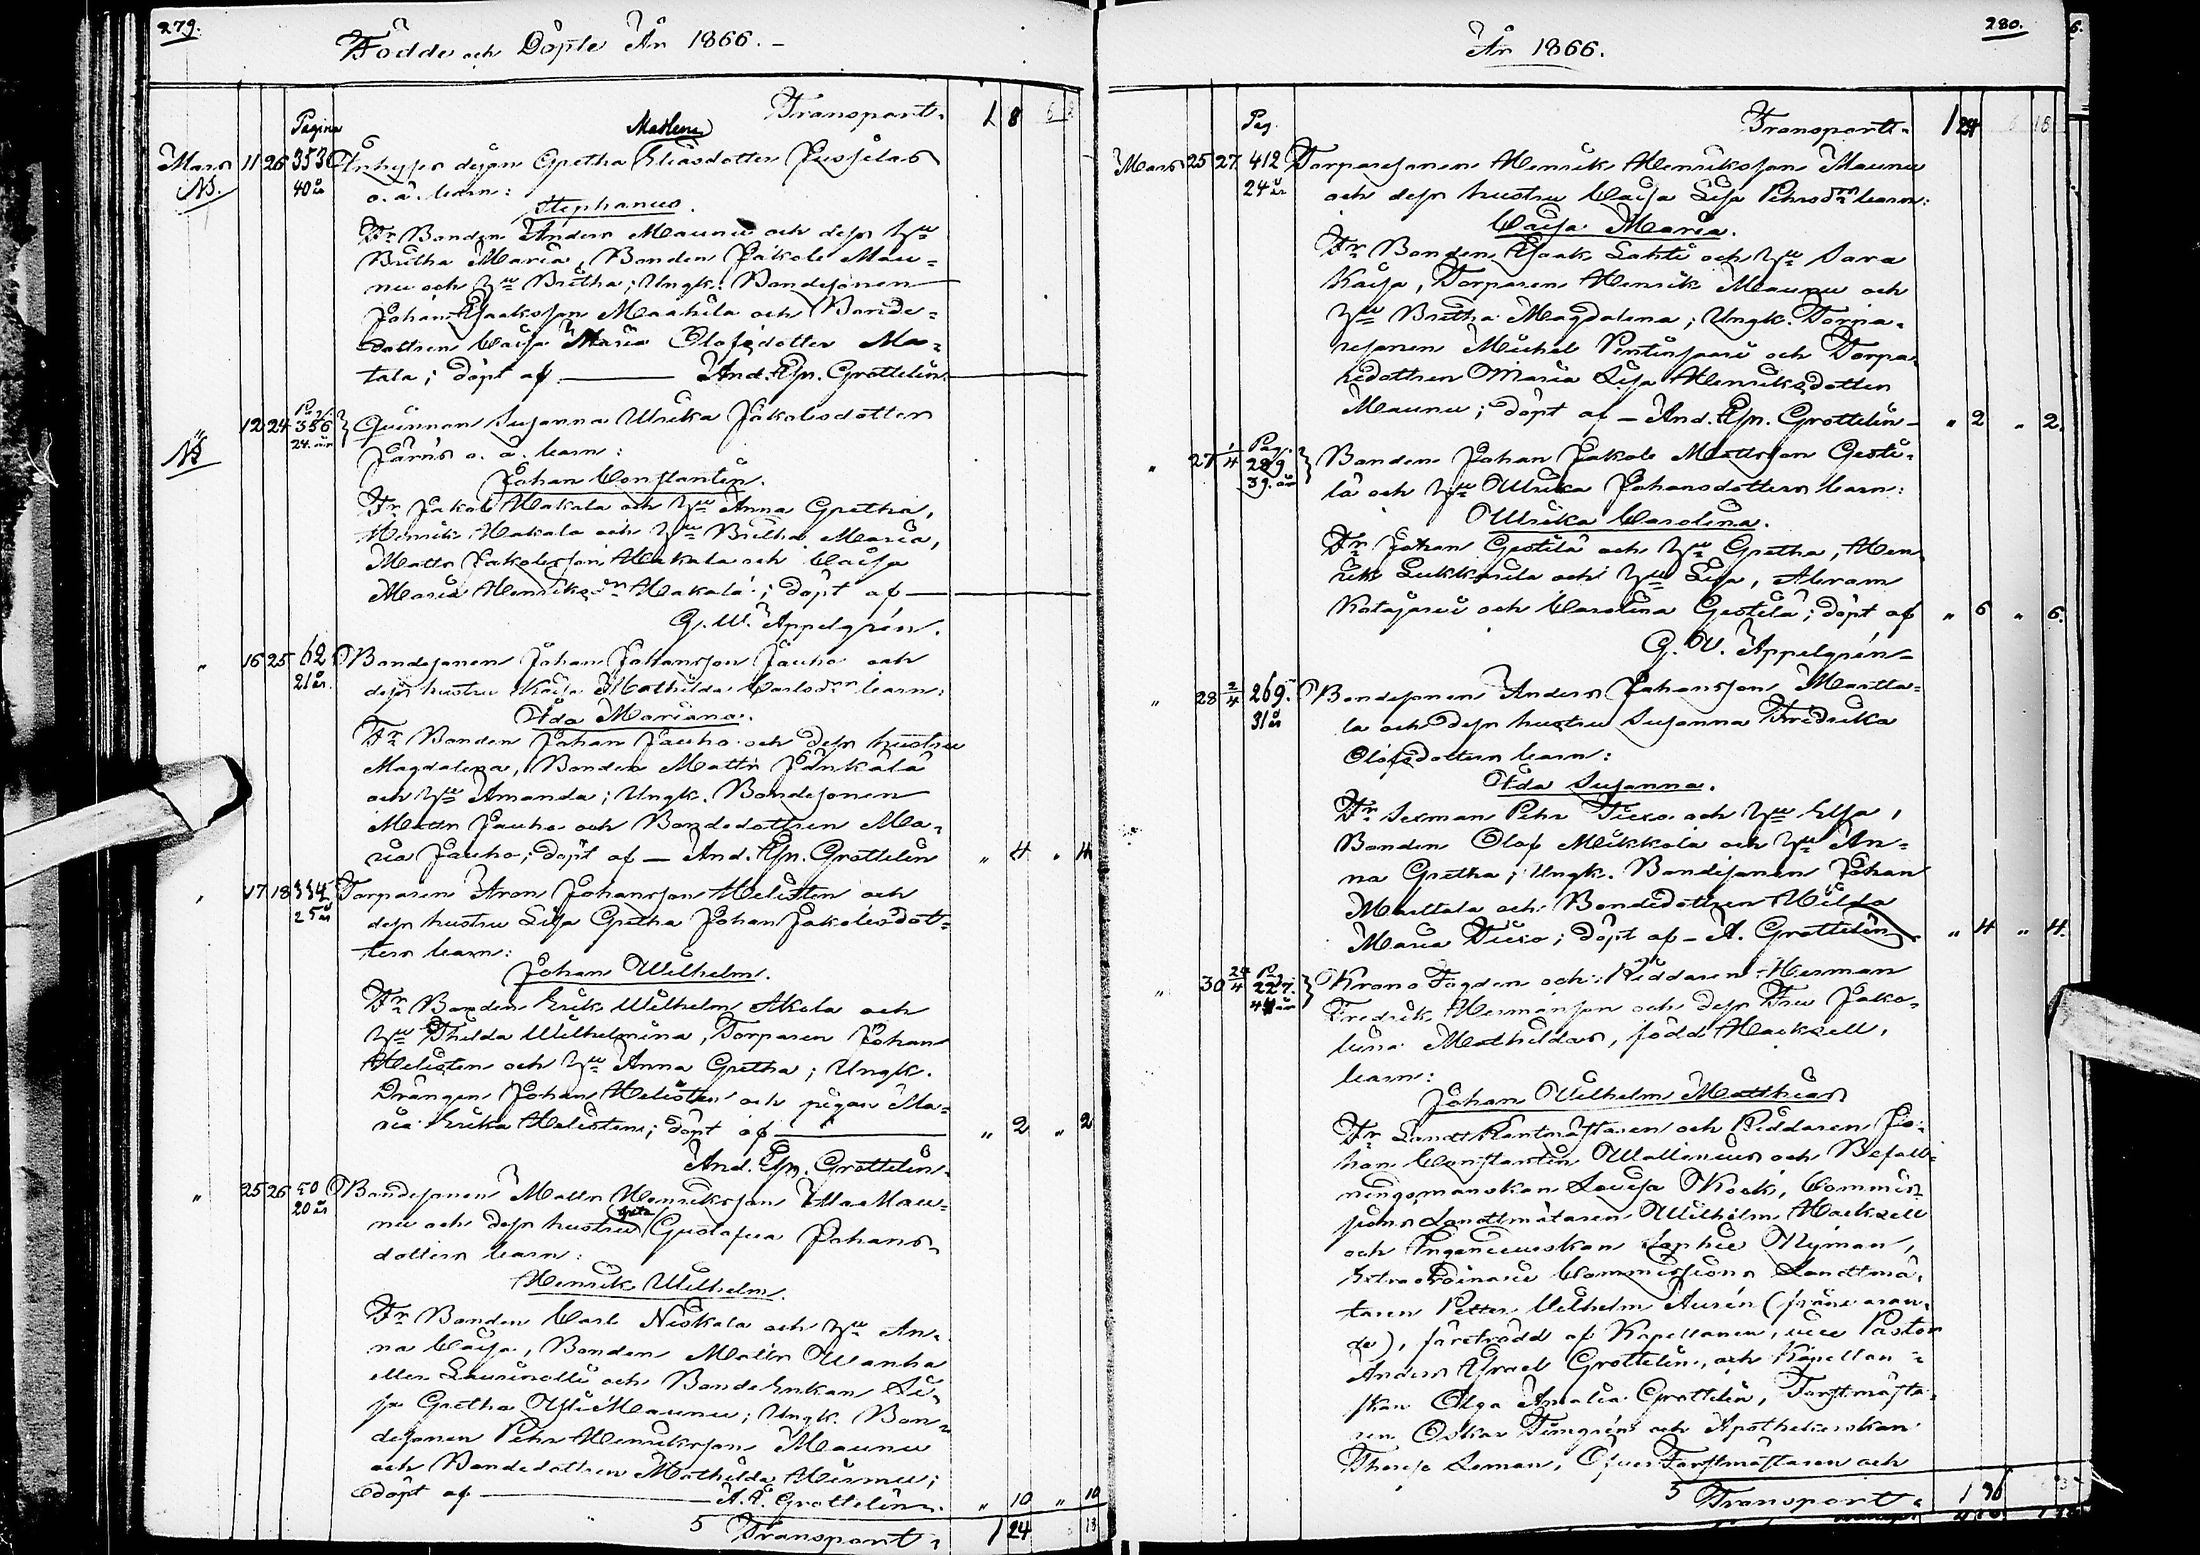 279.
Födde och Döpte År 1866. –
Transport. 1 8
Pagina
Mars 11 26 353 Inhyses deijan Gretha Madlena Eliasdotter Jussilas
NB. 40 år o. ä. barn:
Stephanus.
Fr Bonden Anders Maunu och dess hu
Britha Maria, Bonden Jakob Mau-
nu och hu Britha; Ungk. Bondesonen
Johan Isaaksson Maahila och Bonde-
dottren Caisa Maria Olofsdotter Ma-
tala; döpt af — And. Isr. Grottelin.
" 12 24 Pag. 356 Qvinnan Susanna Ulrika Jakobsdotter
NB 24. år Järn's o. ä. barn:
Johan Constantin.
Fr Jakob Hakala och hu Anna Gretha,
Henrik Hakala och hu Britha Maria,
Matts Jakobsson Hakala och Caisa
Maria Henriksdr Hakala; döpt af —
G. W. Appelgrén.
" 16 25 62 Bondesonen Johan Johansson Jauho och
21 år. dess hustru Kaisa Mathilda Carlsdrs barn:
Ida Mariana.
Fr Bonden Johan Jauho och dess hustru
Magdalena, Bonden Matts Jänkälä
och hu Amanda; Ungk. Bondesonen
Matts Jauho och Bondedottren Ma-
ria Jauho; döpt af — And. Isr. Grottelin " 4 " 4
" 17 18 334 Torparen Aron Johansson Helisten och
25 år dess hustru Lisa Gretha Johan Jakobsdot-
ters barn:
Johan Wilhelm.
Fr Bonden Erik Wilhelm Akola och
hu Thilda Wilhelmina, Torparen Johan
Helisten och hu Anna Gretha; Ungk.
Drängen Johan Helisten och pigan Ma-
ria Erika Helisten; döpt af — " 2 " 2
And. Isr. Grottelin.
" 25 26 50 Bondesonen Matts Henriksson Mau-
20 år nu och dess hustru Greta Gustafva Johans-
dotters barn:
Henrik Wilhelm.
Fr Bonden Carl Niskala och hu An-
na Caisa, Bonden Matts Wanha
eller Laurinolli och Bonde Enkan Li-
sa Gretha Maunu; Ungk. Bon-
desonen Pehr Henriksson Maunu
och Bondedottren Mathilda Hermu;
döpt af — A. I. Grottelin. " 10 " 10
5 Transport. 1 24 18
280.
År 1866.
Pag. Transport. 1 24 18
Mars 25 27. 412 Torparesonen Henrik Henriksson Maunu
24 år och dess hustru Caisa Lisa Pehrsdrs barn:
Caisa Maria.
Fr Bonden Isaak Lahti och hu Sara
Kaisa, Torparen Henrik Maunu och
hu Britha Magdalena; Ungk. Torpa-
resonen Michel Pentinsaari och Torpa-
redottren Maria Lisa Henriksdotter
Maunu; döpt af — And. Isr. Grottelin – " 2 " 2.
" 27 1/4 Pag. 289. Bonden Johan Jakob Mattsson Gesti-
39. år lä och hu Ulrika Johansdotters barn:
Ulrika Carolina.
Fr Johan Gestilä och hu Gretha, Hen-
rik Lukkarila och hu Lisa, Abram
Katajarii och Carolina Gestilä; döpt af " 6 " 6.
G. W. Appelgrén –
" 28 2/4 269. Bondesonen Anders Johansson Martta-
31 år la och dess hustru Susanna Fredrika
Olofsdotters barn:
Ida Susanna.
Fr Sexman Pehr Tiiro och hu Elsa,
Bonden Olof Mikkola och hu An-
na Gretha; Ungk. Bondesonen Johan
Marttala och Bondedottren Hilda
Maria Tiiro; döpt af – A. Grottelin " 4 " 4.
" 30 24/4 Pag. 227. Krono Fogden och Riddaren Herman
44 år Fredrik Hermansson och dess Fru Jako-
bina Mathildas, född Hacksell,
barn:
Johan Wilhelm Matthias
Fr Landt Räntmästaren och Riddaren Jo-
han Constantin Wallenius och Befall-
ningsmanskan Lovisa Krook, Commis-
sions Landtmätaren Wilhelm Hacksell
och Ingenieurskan Sophie Nyman,
Extraordinarie Commissions Landtmä-
taren Petter Wilhelm Aurén (frånvaran-
de), företrädd af Kapellanen, vice Pastor
Anders Israel Grottelin, och Kapellan-
skan Olga Amalia Grottelin, Forstmästa-
ren Oskar Timgrén och Apothekerskan
Therese Leman, Öfver Forstmästaren och
5 Transport. 1 36